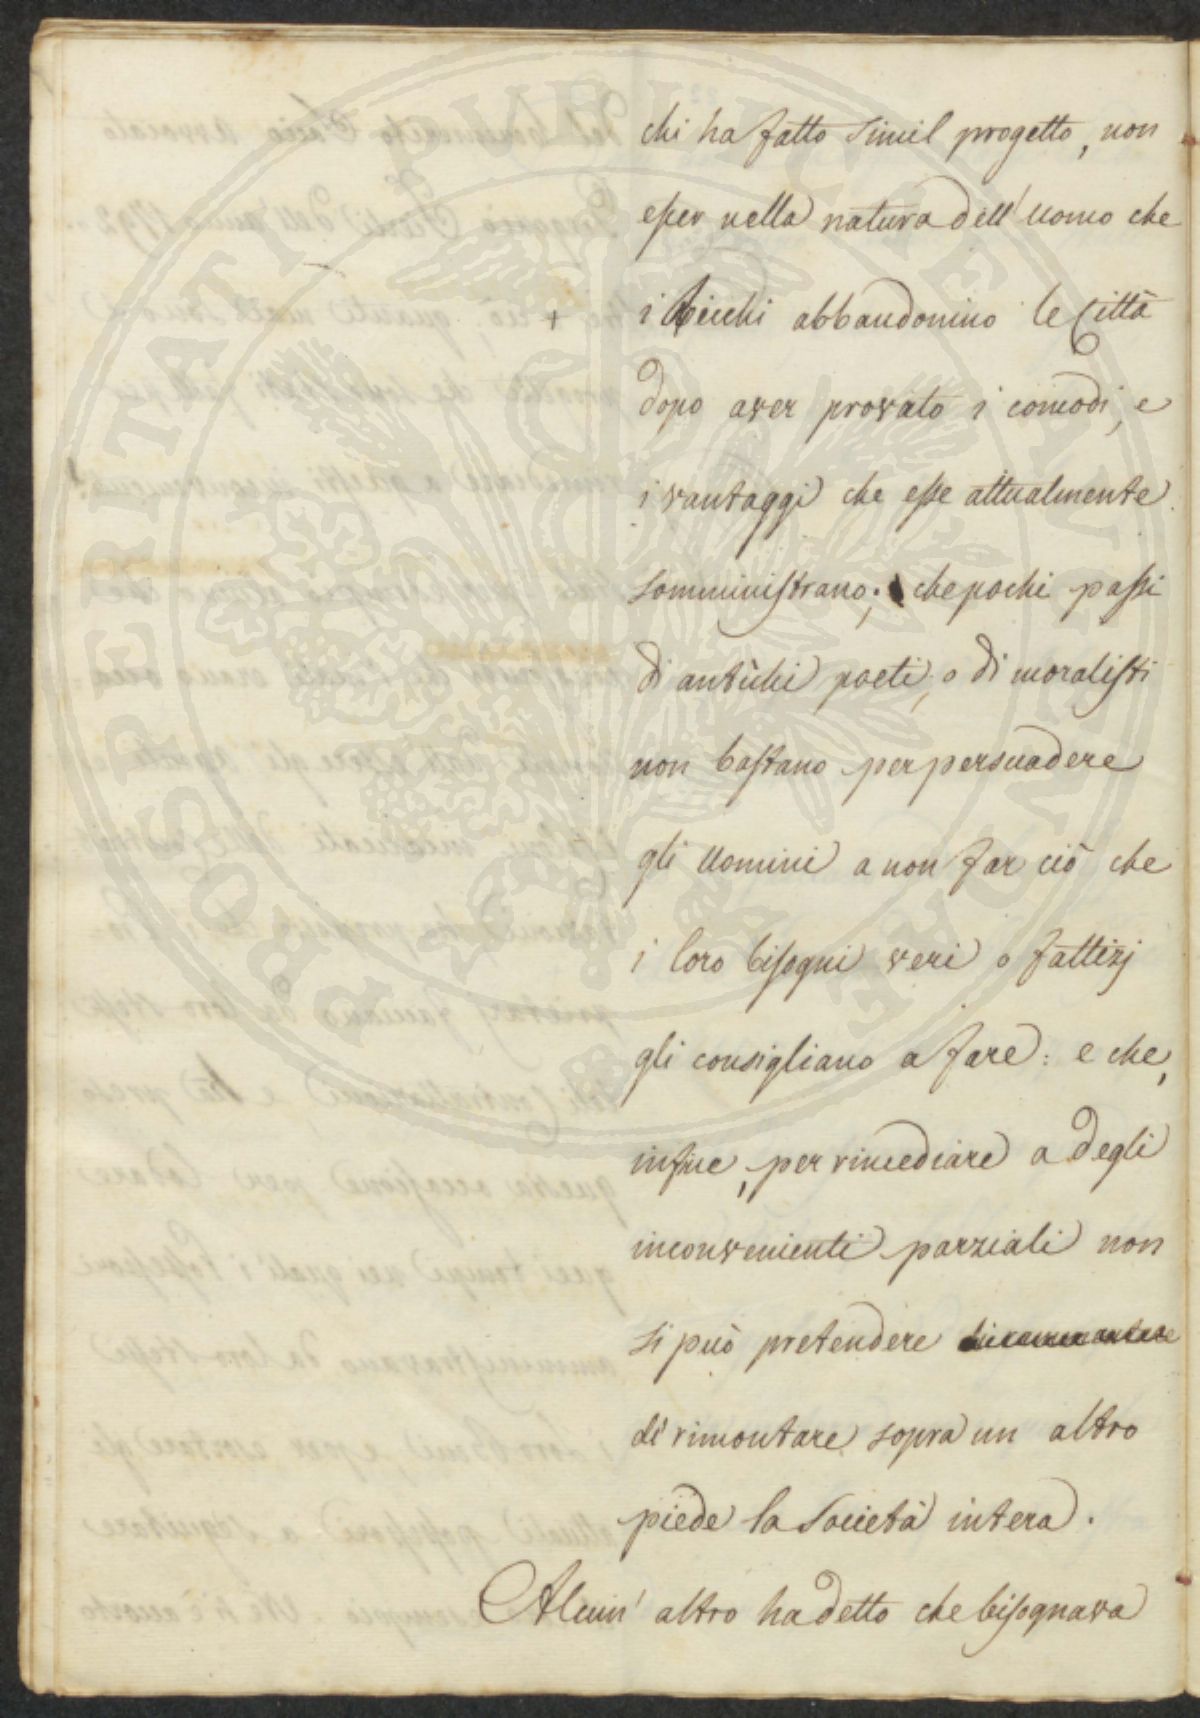 chi ha fatto simil progetto, non
esser nella natura dell'uomo che
+ i Ricchi abbandonino le Città
dopo aver provato i comodi, e
i vantaggi che esse attualmente
somministrano; che pochi passi
di antichi poeti, o di moralisti
non bastano per persuadere
gli uomini a non far ciò che
i loro bisogni veri o fattizj
gli consigliano a fare: e che,
infine, per rimediare a degli
inconvenienti parziali non
si può pretendere
di rimontare sopra un altro
piede la Società intera.
Alcun' altro ha detto che bisognava
PROSPERITATI PUBLICAE AUGENDAE